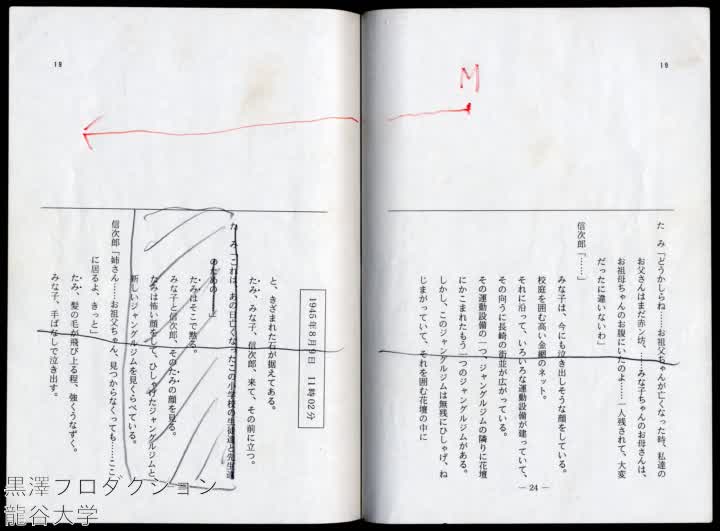 19
M
た み「どうかしらね……お祖父ちゃんが亡くなった時、私達の
お父さんはまだ赤ン坊、……みな子ちゃんのお母さんは、
お祖母ちゃんのお腹にいたのよ……一人残されて、大変
だったに違いないわ」
信次郎「……」
みな子は、今にも泣き出しそうな顔をしている。
校庭を囲む高い金網のネット。
それに沿って、いろいろな運動設備が建っていて、
その向うに長崎の街並が広がっている。
その運動設備の一つ、ジャングルジムの隣りに花壇
にかこまれたもう一つのジャングルジムがある。
しかし、このジャングルジムは無残にひしゃげ、ね
じまがっていて、それを囲む花壇の中に
― 24 ―
19
1945年8月9日 11時02分
と、きざまれた石が据えてある。
たみ、みな子、信次郎、来て、その前に立つ。
た み「これは、あの日亡くなったこの小学校の生徒達と先生達
のための――」
たみはそこで黙る。
みな子と信次郎、そのたみの顔を見る。
たみは怖い顔をして、ひしゃげたジャングルジムと、
新しいジャングルジムを見くらべている。
信次郎「姉さん……お祖父ちゃん、見つからなくっても……ここ
に居るよ、きっと」
たみ、髪の毛が飛び上る程、強くうなずく。
みな子、手ばなしで泣き出す。
黒澤プロダクション
龍谷大学